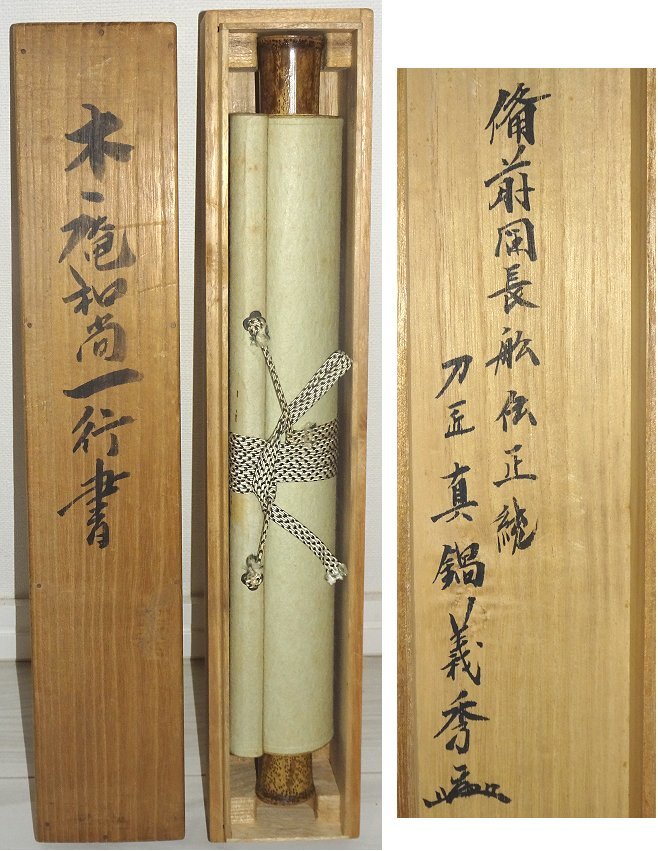 木庵和尚一行書
備前国長舩伝正統
刀匠 真鍋ノ義秀